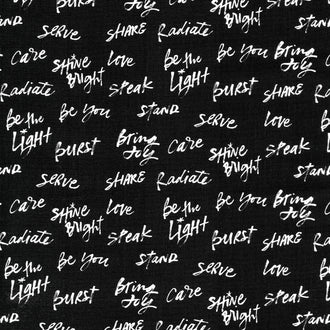 Serve SHARE Radiate SHINE Bright Speak
Care SHINE Bright Love Be the Light Be You Bring Joy
Radiate Speak BURST STAND
Be the Light Be You STAND Serve SHARE
BURST Bring Joy Care SHINE Bright Love
Serve SHARE Radiate Speak
Care SHINE Bright Love Be the Light Be You Bring Joy
Radiate Speak BURST STAND
Be the Light Be You STAND Serve SHARE
BURST Bring Joy Care SHINE Bright Love